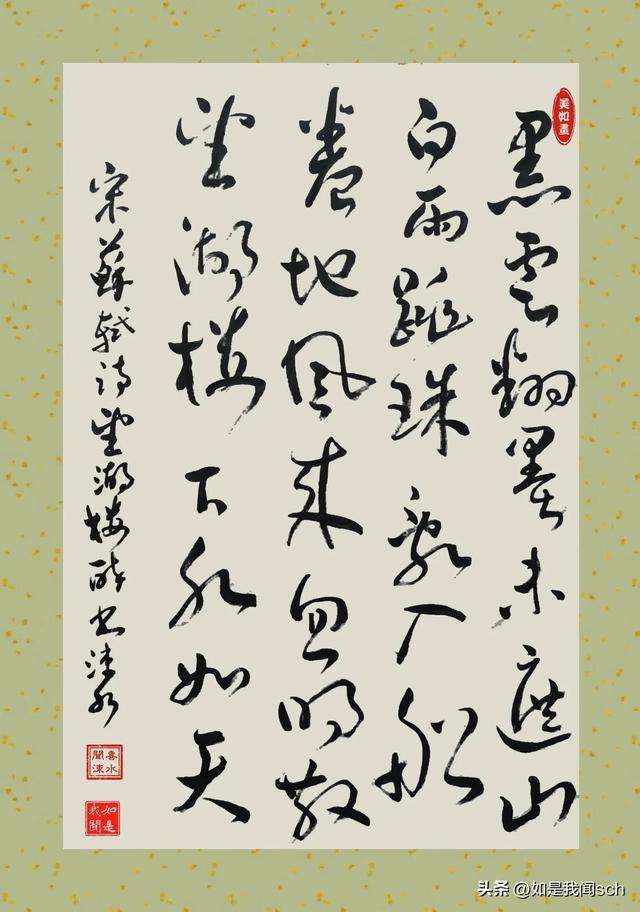 美如畫
黑雲翻墨未遮山
白雨跳珠亂入船
卷地風来忽吹散
望湖樓下水如天
宋蘇軾詩望湖樓醉書涑水
如是我聞
头条 @如是我闻sch